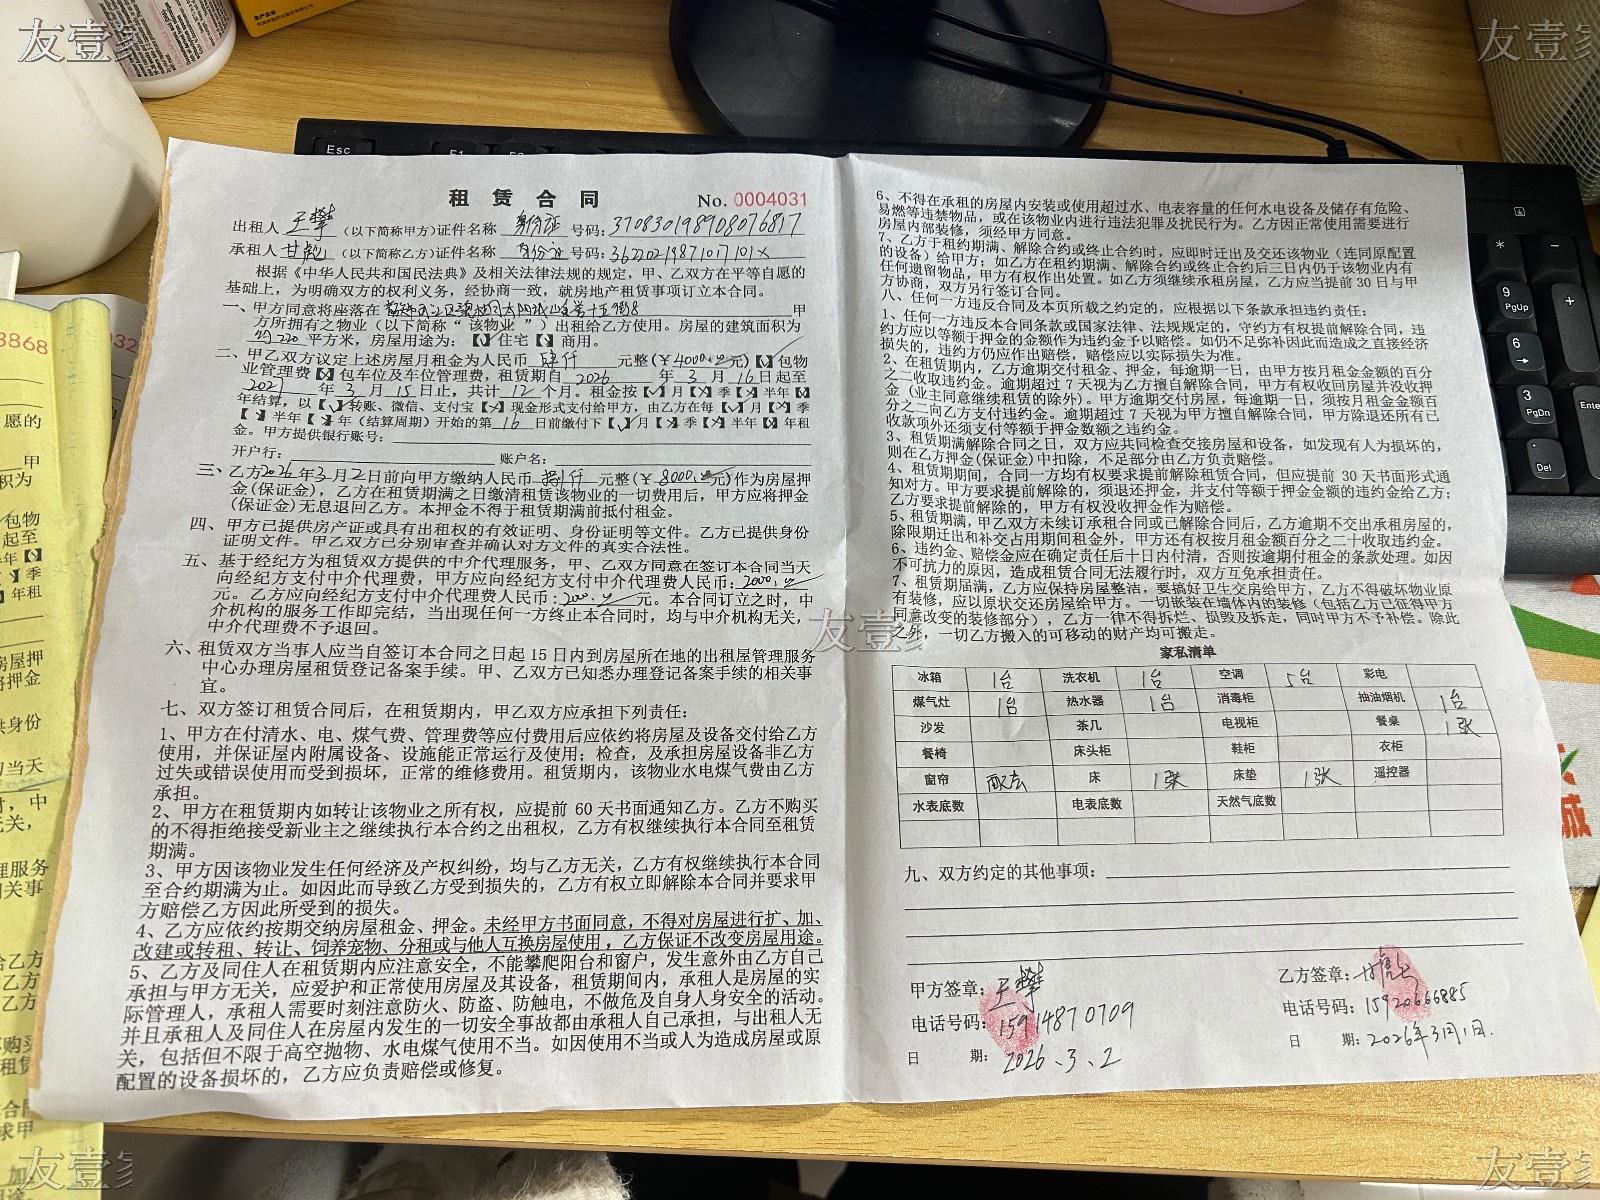 友壹家
友壹家
Esc
租 赁 合 同 No. 0004031
出租人 王攀 (以下简称甲方)证件名称 身份证 号码: 370830198908076817
承租人 甘彪 (以下简称乙方)证件名称 身份证 号码: 36220219871017101X
根据《中华人民共和国民法典》及相关法律法规的规定，甲、乙双方在平等自愿的
基础上，为明确双方的权利义务，经协商一致，就房地产租赁事项订立本合同。
一、甲方同意将座落在 甲
方所拥有之物业（以下简称“该物业”）出租给乙方使用。房屋的建筑面积为
约220 平方米，房屋用途为：【 】住宅【 】商用。
二、甲乙双方议定上述房屋月租金为人民币 肆仟 元整(￥4000.00元)【 】包物
业管理费【 】包车位及车位管理费，租赁期自 2026 年 3 月 16 日起至
2027 年 3 月 15 日止，共计 12 个月。租金按【√】月【×】季【×】半年【×】
年结算，以【√】转账、微信、支付宝【×】现金形式支付给甲方，由乙方在每【√】月【×】季
【×】半年【×】年（结算周期）开始的第 16 日前缴付下【√】月【×】季【×】半年【×】年租
金。甲方提供银行账号：
开户行： 账户名：
三、乙方2026年3月2日前向甲方缴纳人民币 捌仟 元整(￥8000.00元)作为房屋押
金(保证金)，乙方在租赁期满之日缴清租赁该物业的一切费用后，甲方应将押金
(保证金)无息退回乙方。本押金不得于租赁期满前抵付租金。
四、甲方已提供房产证或具有出租权的有效证明、身份证明等文件。乙方已提供身份
证明文件。甲乙双方已分别审查并确认对方文件的真实合法性。
五、基于经纪方为租赁双方提供的中介代理服务，甲、乙双方同意在签订本合同当天
向经纪方支付中介代理费，甲方应向经纪方支付中介代理费人民币：2000.00
元。乙方应向经纪方支付中介代理费人民币：200.00 元。本合同订立之时，中
介机构的服务工作即完结，当出现任何一方终止本合同时，均与中介机构无关，
中介代理费不予退回。
六、租赁双方当事人应当自签订本合同之日起 15 日内到房屋所在地的出租屋管理服务
中心办理房屋租赁登记备案手续。甲、乙双方已知悉办理登记备案手续的相关事
宜。
七、双方签订租赁合同后，在租赁期内，甲乙双方应承担下列责任：
1、甲方在付清水、电、煤气费、管理费等应付费用后应依约将房屋及设备交付给乙方
使用，并保证屋内附属设备、设施能正常运行及使用；检查，及承担房屋设备非乙方
过失或错误使用而受到损坏，正常的维修费用。租赁期内，该物业水电煤气费由乙方
承担。
2、甲方在租赁期内如转让该物业之所有权，应提前 60 天书面通知乙方。乙方不购买
的不得拒绝接受新业主之继续执行本合约之出租权，乙方有权继续执行本合同至租赁
期满。
3、甲方因该物业发生任何经济及产权纠纷，均与乙方无关，乙方有权继续执行本合同
至合约期满为止。如因此而导致乙方受到损失的，乙方有权立即解除本合同并要求甲
方赔偿乙方因此所受到的损失。
4、乙方应依约按期交纳房屋租金、押金。未经甲方书面同意，不得对房屋进行扩、加、
改建或转租、转让、饲养宠物、分租或与他人互换房屋使用，乙方保证不改变房屋用途。
5、乙方及同住人在租赁期内应注意安全，不能攀爬阳台和窗户，发生意外由乙方自己
承担与甲方无关，应爱护和正常使用房屋及其设备，租赁期间内，承租人是房屋的实
际管理人，承租人需要时刻注意防火、防盗、防触电，不做危及自身人身安全的活动。
并且承租人及同住人在房屋内发生的一切安全事故都由承租人自己承担，与出租人无
关，包括但不限于高空抛物、水电煤气使用不当。如因使用不当或人为造成房屋或原
配置的设备损坏的，乙方应负责赔偿或修复。
6、不得在承租的房屋内安装或使用超过水、电表容量的任何水电设备及储存有危险、
易燃等违禁物品，或在该物业内进行违法犯罪及扰民行为。乙方因正常使用需要进行
房屋内部装修，须经甲方同意。
7、乙方于租约期满、解除合约或终止合约时，应即时迁出及交还该物业（连同原配置
的设备）给甲方；如乙方在租约期满、解除合约或终止合约后三日内仍于该物业内有
任何遗留物品，甲方有权作出处置。如乙方须继续承租房屋，乙方应当提前 30 日与甲
方协商，双方另行签订合同。
八、任何一方违反合同及本页所载之约定的，应根据以下条款承担违约责任：
1、任何一方违反本合同条款或国家法律、法规规定的，守约方有权提前解除合同，违
约方应以等额于押金的金额作为违约金予以赔偿。如仍不足弥补因此而造成之直接经济
损失的，违约方仍应作出赔偿，赔偿应以实际损失为准。
2、在租赁期内，乙方逾期交付租金、押金，每逾期一日，由甲方按月租金金额的百分
之二收取违约金。逾期超过 7 天视为乙方擅自解除合同，甲方有权收回房屋并没收押
金（业主同意继续租赁的除外）。甲方逾期交付房屋，每逾期一日，须按月租金金额百
分之二向乙方支付违约金。逾期超过 7 天视为甲方擅自解除合同，甲方除退还所有已
收款项外还须支付等额于押金数额之违约金。
3、租赁期满解除合同之日，双方应共同检查交接房屋和设备，如发现有人为损坏的，
则在乙方押金(保证金)中扣除，不足部分由乙方负责赔偿。
4、租赁期期间，合同一方均有权要求提前解除租赁合同，但应提前 30 天书面形式通
知对方。甲方要求提前解除的，须退还押金，并支付等额于押金金额的违约金给乙方；
乙方要求提前解除的，甲方有权没收押金作为赔偿。
5、租赁期满，甲乙双方未续订承租合同或已解除合同后，乙方逾期不交出承租房屋的，
除限期迁出和补交占用期间租金外，甲方还有权按月租金额百分之二十收取违约金。
6、违约金、赔偿金应在确定责任后十日内付清，否则按逾期付租金的条款处理。如因
不可抗力的原因，造成租赁合同无法履行时，双方互免承担责任。
7、租赁期届满，乙方应保持房屋整洁，要搞好卫生交房给甲方，乙方不得破坏物业原
有装修，应以原状交还房屋给甲方。一切嵌装在墙体内的装修（包括乙方已征得甲方
同意改变的装修部分），乙方一律不得拆烂、损毁及拆走，同时甲方不予补偿。除此
之外，一切乙方搬入的可移动的财产均可搬走。
友壹家
家私清单
冰箱 1台 洗衣机 1台 空调 5台 彩电
煤气灶 1台 热水器 1台 消毒柜 抽油烟机 1台
沙发 茶几 电视柜 餐桌 1张
餐椅 床头柜 鞋柜 衣柜
窗帘 配套 床 1张 床垫 1张 遥控器
水表底数 电表底数 天然气底数
九、双方约定的其他事项：
甲方签章：王攀
电话号码：15914870709
日 期：2026.3.2
乙方签章：甘彪
电话号码：15920666885
日 期：2026年3月1日.
9
PgUp
6
3
PgDn
Enter
Del
友壹家
友壹家